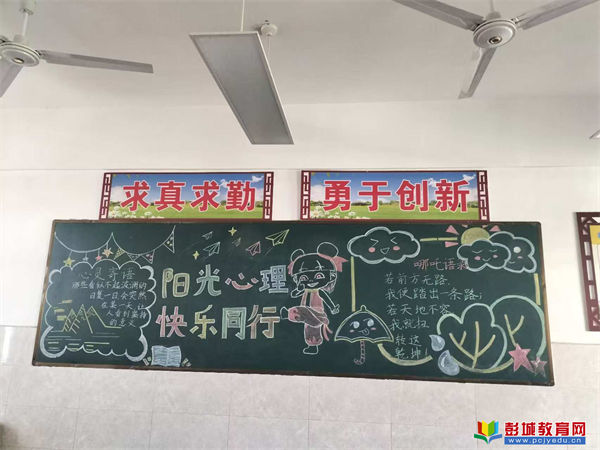 求真求勤
勇于创新
心灵寄语
那些看似不起波澜的
日复一日会突然
在某一天让
人看到坚持
的意义
阳光心理
快乐同行
哪吒语录
若前方无路,
我便踏出一条路;
若天地不容
我就扭
转这
乾坤!
彭城教育网
www.pcjyedu.cn